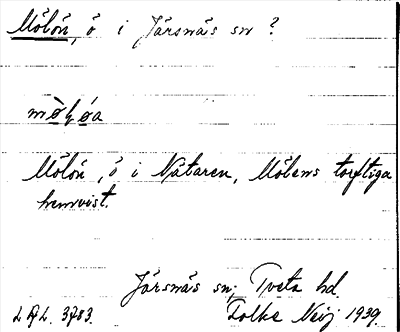 Målön, ö i Järsnäs sn?
Målön, ö i Nätaren, Målens torftiga
hemvist.
Järsnäs sn; Tveta hd
3783. Folke 1939.